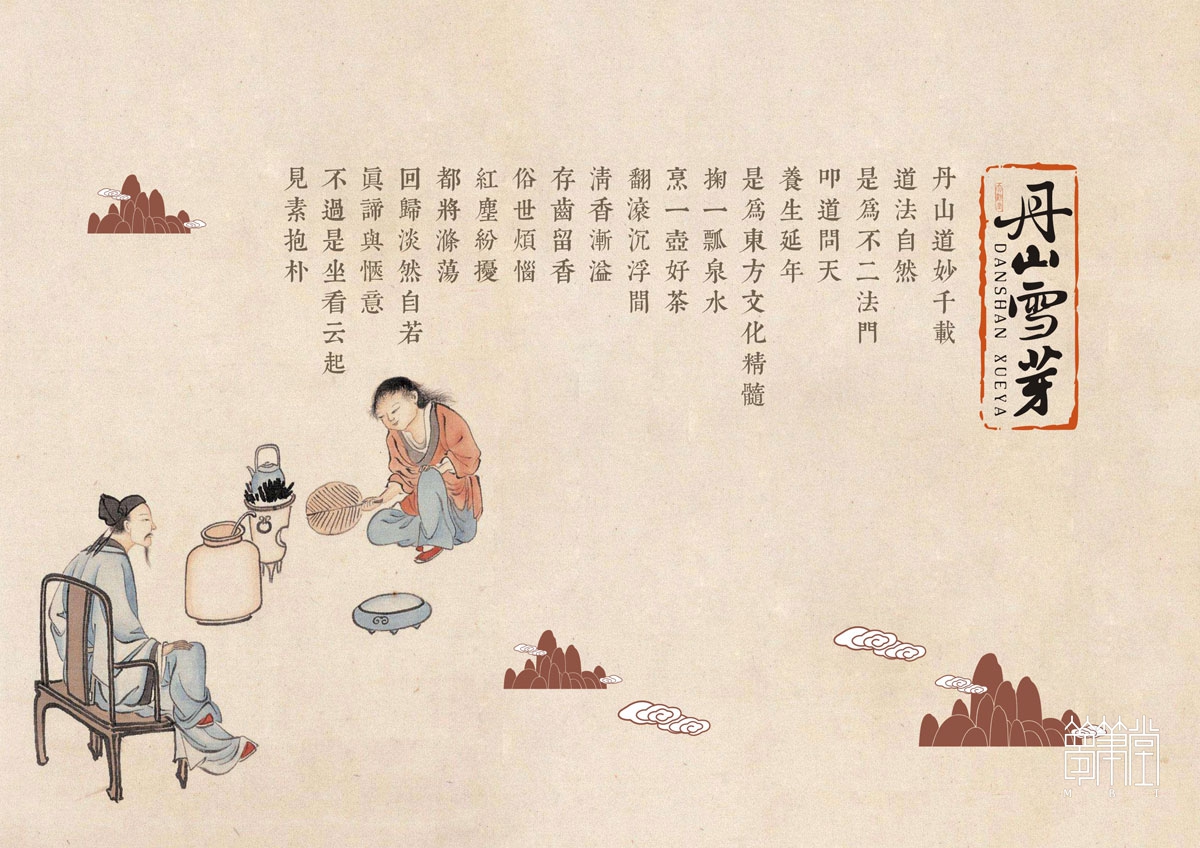 丹山雪芽
DANSHAN XUEYA
丹山道妙千載
道法自然
是爲不二法門
叩道問天
養生延年
是爲東方文化精髓
掬一瓢泉水
烹一壺好茶
翻滾沉浮間
清香漸溢
存齒留香
俗世煩惱
紅塵紛擾
都將滌蕩
回歸淡然自若
眞諦與愜意
不過是坐看云起
見素抱朴
MBT